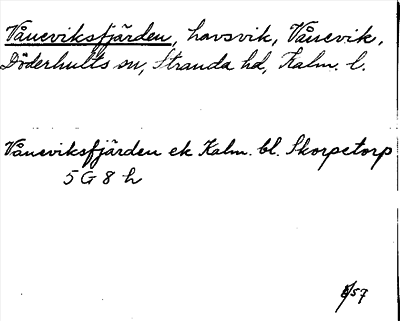 Våneviksfjärden, havsvik, Vånevik,
Döderhults sn, Stranda hd, Kalm. l.
Våneviksfjärden ek Kalm. bl. Skorpetorp
5 G 8 h